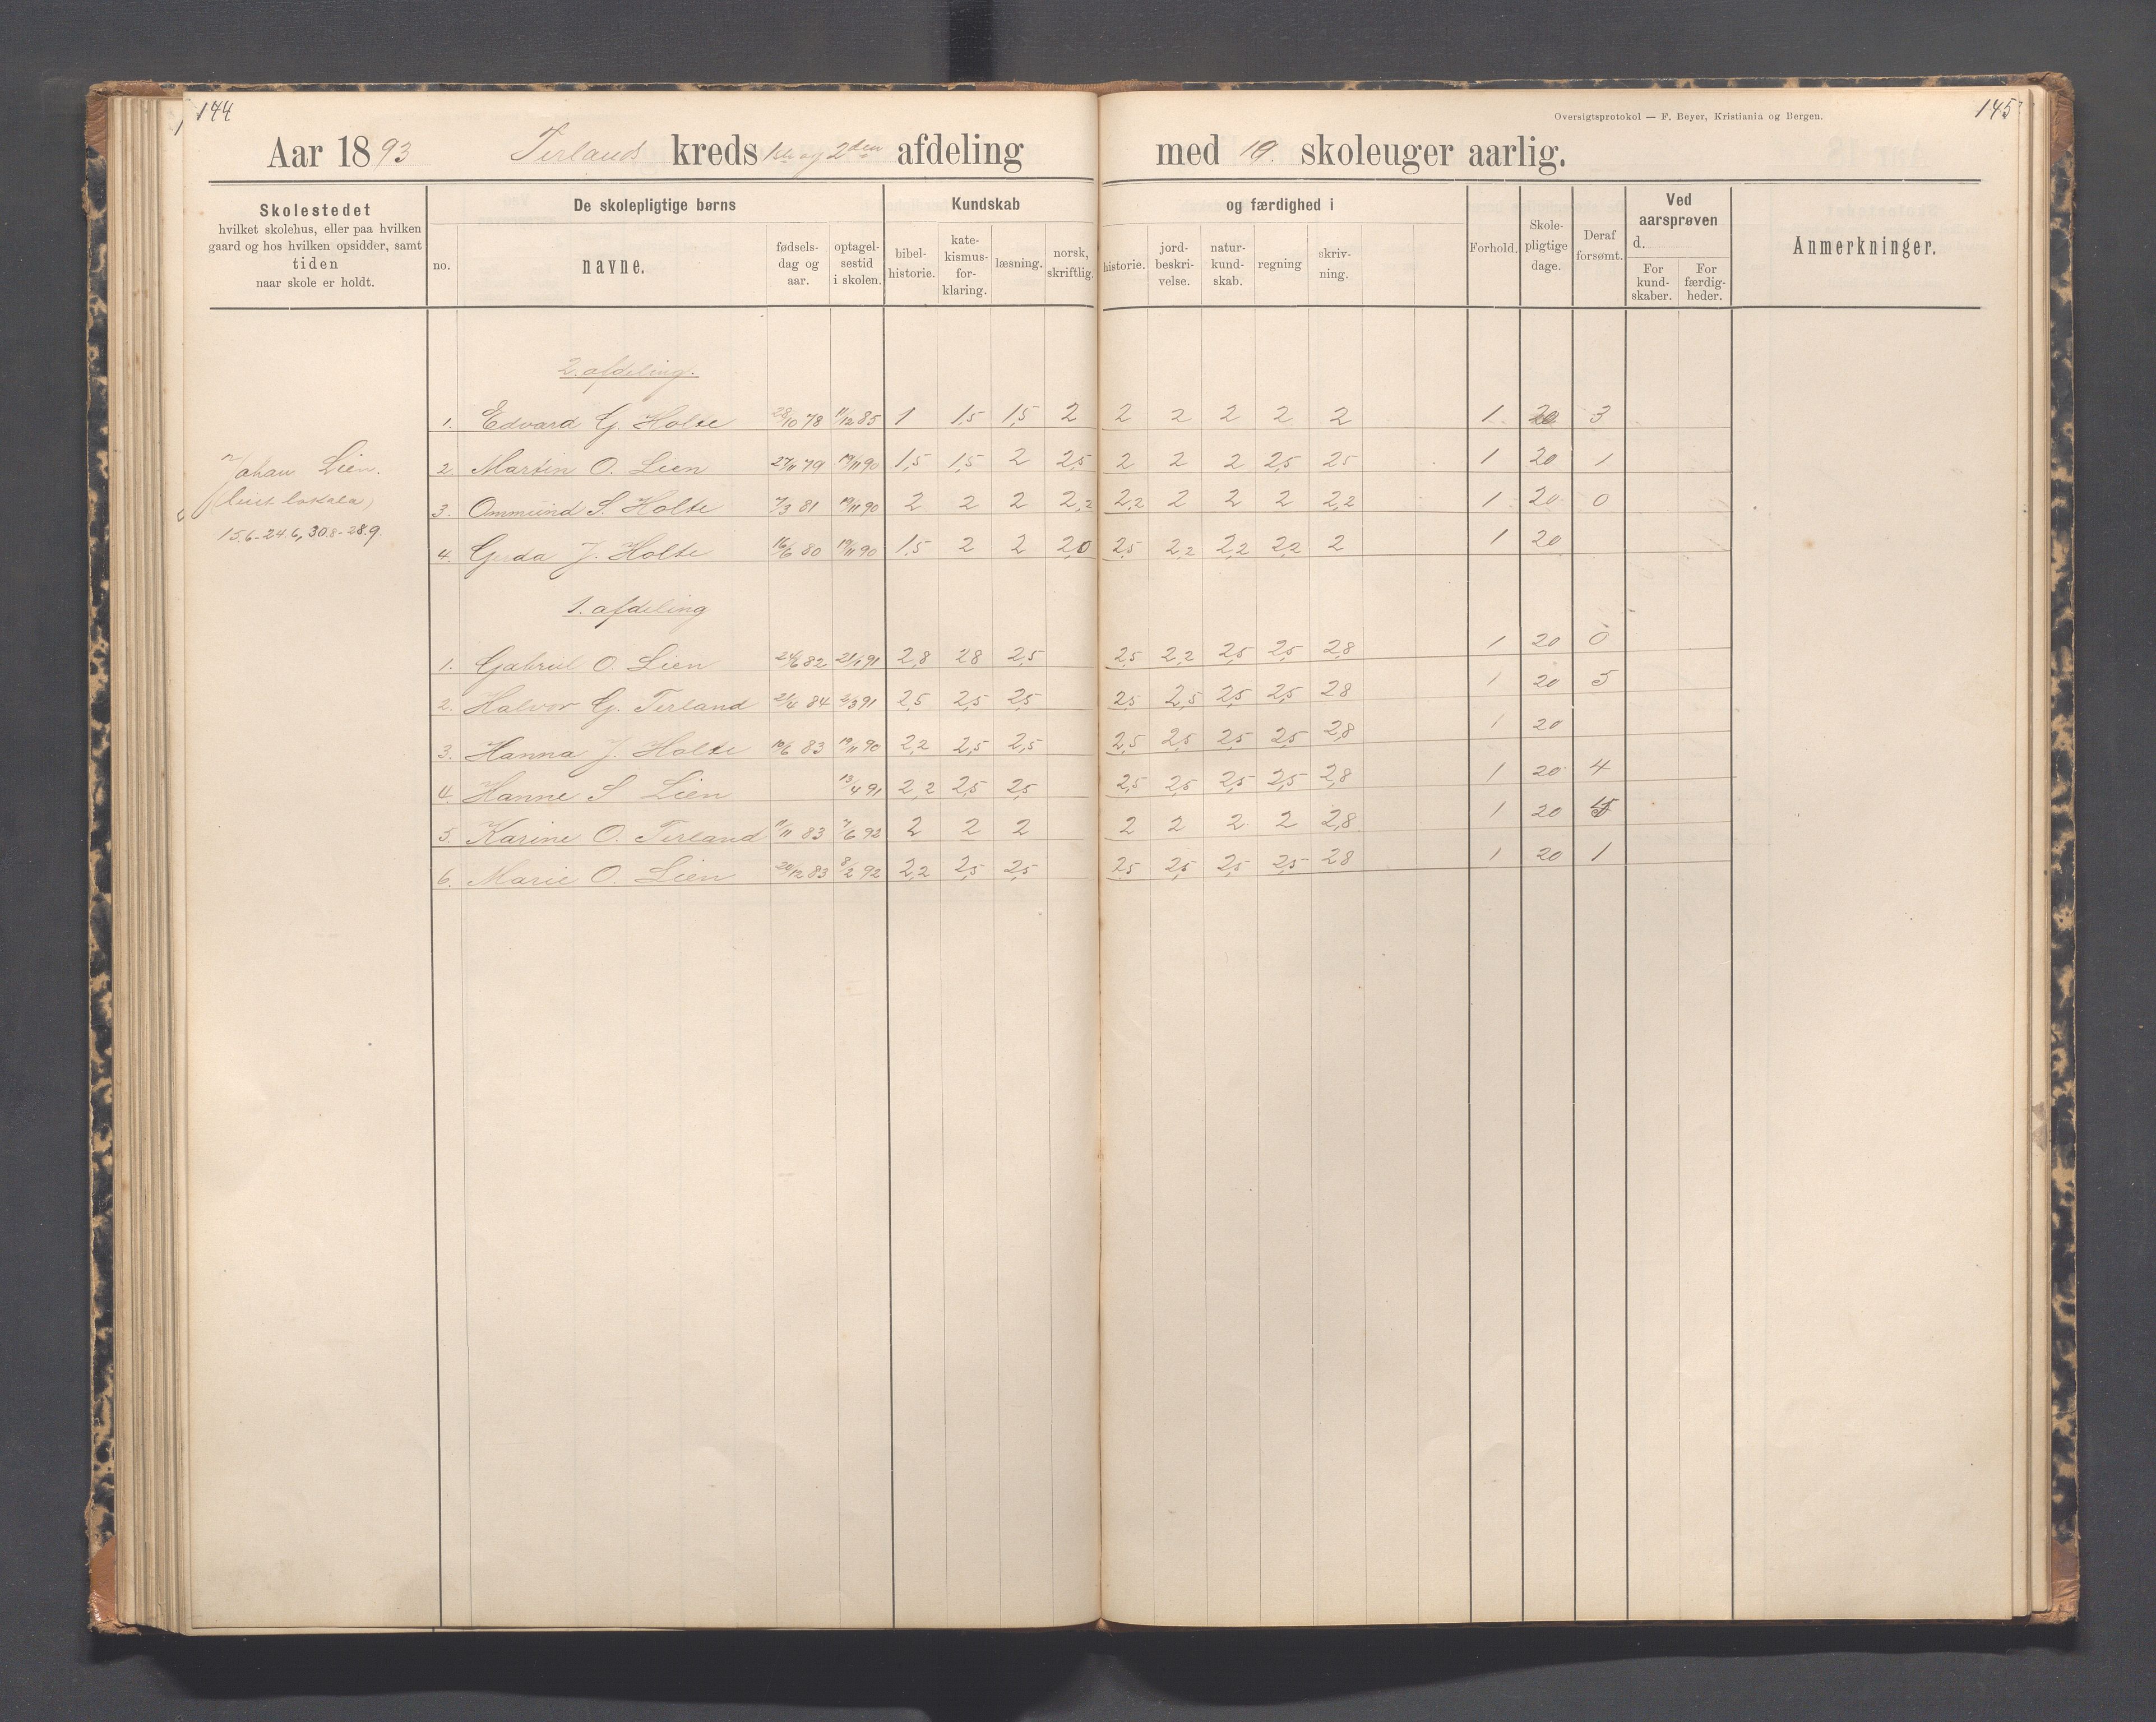 144
145
Oversigtsprotokol — F. Beyer, Kristiania og Bergen.
Aar 1893 Tirlands kreds 1ste og 2den afdeling med 19. skoleuger aarlig.
Skolestedet
hvilket skolehus, eller paa hvilken
gaard og hos hvilken opsidder, samt
tiden
naar skole er holdt.
De skolepligtige børns
no.
navne.
fødsels-
dag og
aar.
optagel-
sestid
i skolen.
Kundskab
og færdighed i
bibel-
historie.
kate-
kismus-
for-
klaring.
læsning.
norsk,
skriftlig.
historie.
jord-
beskri-
velse.
natur-
kund-
skab.
regning
skriv-
ning.
Forhold.
Skole-
pligtige
dage.
Deraf
forsømt.
Ved
aarsprøven
d.
For
kund-
skaber.
For
færdig-
heder.
Anmerkninger.
2. afdeling.
1. Edvard G. Holte 28/10 78 11/12 85 1 1,5 1,5 2 2 2 2 2 2 1 20 3
Johan Lien.
2. Martin O. Lien 27/11 79 19/11 90 1,5 1,5 2 2,5 2 2 2 2,5 2,5 1 20 1
(leiet lokale)
3. Ommund S. Holte 7/3 81 19/11 90 2 2 2 2,2 2,2 2 2 2 2,2 1 20 0
15.6-24.6, 30.8-28.9.
4. Gerda J. Holte 16/6 80 19/11 90 1,5 2 2 2,0 2,5 2,2 2,2 2,2 2 1 20
1. afdeling
1. Gabriel O. Lien 24/6 82 21/1 91 2,8 2,8 2,5 2,5 2,2 2,5 2,5 2,8 1 20 0
2. Halvor G. Tirland 2/4 84 2/3 91 2,5 2,5 2,5 2,5 2,5 2,5 2,5 2,8 1 20 5
3. Hanna J. Holte 10/6 83 19/11 90 2,2 2,5 2,5 2,5 2,5 2,5 2,5 2,8 1 20
4. Hanne S Lien 13/4 91 2,2 2,5 2,5 2,5 2,5 2,5 2,5 2,8 1 20 4
5. Karine O. Tirland 11/11 83 7/6 92 2 2 2 2 2 2 2 2,8 1 20
6. Marie O. Lien 20/12 83 8/2 92 2,2 2,5 2,5 2,5 2,5 2,5 2,5 2,8 1 20 1